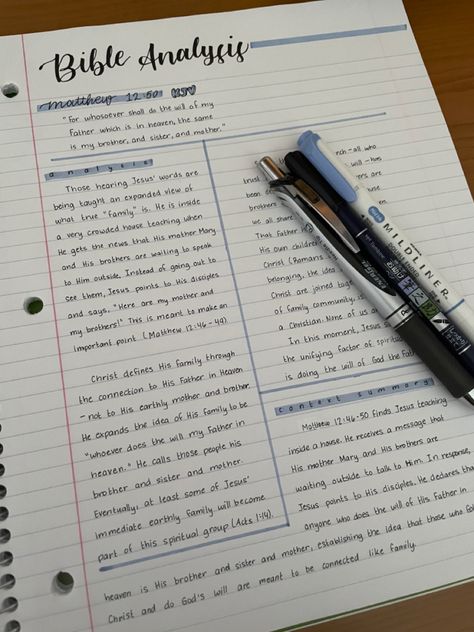 Bible Analysis
Matthew 12:50 KJV
"For whosoever shall do the will of my
Father which is in heaven, the same
is my brother, and sister, and mother."
analysis
Those hearing Jesus' words are
being taught an expanded view of
what true "family" is. He is inside
a very crowded house teaching when
He gets the news that his mother Mary
and His brothers are waiting to speak
to Him outside. Instead of going out to
see them, Jesus points to His disciples
and says, "Here are my mother and
my brothers!" This is meant to make an
important point. (Matthew 12:46-49).
Christ defines His family through
the connection to His Father in Heaven
- not to His earthly mother and brother.
He expands the idea of His family to be
"whoever does the will my Father in
heaven." He calls those people his
brother and sister and mother.
Eventually, at least some of Jesus'
immediate earthly family will become
part of this spiritual group (Acts 1:14).
- all who
will - has
trust
been
are
brothers
we all share
That Father
His own children
Christ (Romans
belonging, the idea
Christ are joined
of family community, is
a Christian. None of us
In this moment, Jesus
the unifying factor of
is doing the will of God the
context summary
Matthew 12:46-50 finds Jesus teaching
inside a house. He receives a message that
His mother Mary and His brothers are
waiting outside to talk to Him. In response,
Jesus points to His disciples. He declares that
anyone who does the will of His Father in
heaven is His brother and sister and mother, establishing the idea that those who
Christ and do God's will are meant to be connected like family.
MILDLINER